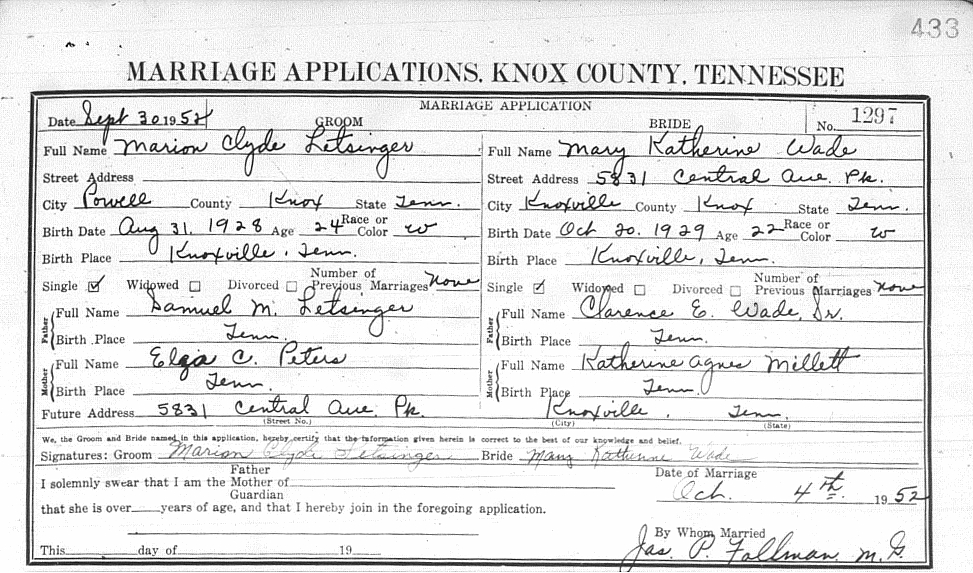 433
MARRIAGE APPLICATIONS, KNOX COUNTY, TENNESSEE
MARRIAGE APPLICATION
Date Sept 30 1952 GROOM BRIDE No. 1297
Full Name Marion Clyde Letsinger Full Name Mary Katherine Wade
Street Address Street Address 5831 Central Ave. Pk.
City Powell County Knox State Tenn. City Knoxville County Knox State Tenn.
Birth Date Aug 31, 1928 Age 24 Race or Color w Birth Date Oct 20, 1929 Age 22 Race or Color w
Birth Place Knoxville, Tenn. Birth Place Knoxville, Tenn.
Single ☑ Widowed ☐ Divorced ☐ Number of Previous Marriages None Single ☑ Widowed ☐ Divorced ☐ Number of Previous Marriages None
Father Full Name Samuel M. Letsinger Full Name Clarence E. Wade, Sr.
Birth Place Tenn. Father Birth Place Tenn.
Mother Full Name Elga C. Peters Full Name Katherine Agnes Millett
Birth Place Tenn. Mother Birth Place Tenn.
Future Address 5831 Central Ave. Pk. Knoxville, Tenn.
(Street No.) (City) (State)
We, the Groom and Bride named in this application, hereby certify that the information given herein is correct to the best of our knowledge and belief.
Signatures: Groom Marion Clyde Letsinger Bride Mary Katherine Wade
Father
I solemnly swear that I am the Mother of
Guardian
Date of Marriage
Oct. 4th. 1952
that she is over years of age, and that I hereby join in the foregoing application.
By Whom Married
This day of 19 Jas. P. Follman, M.G.